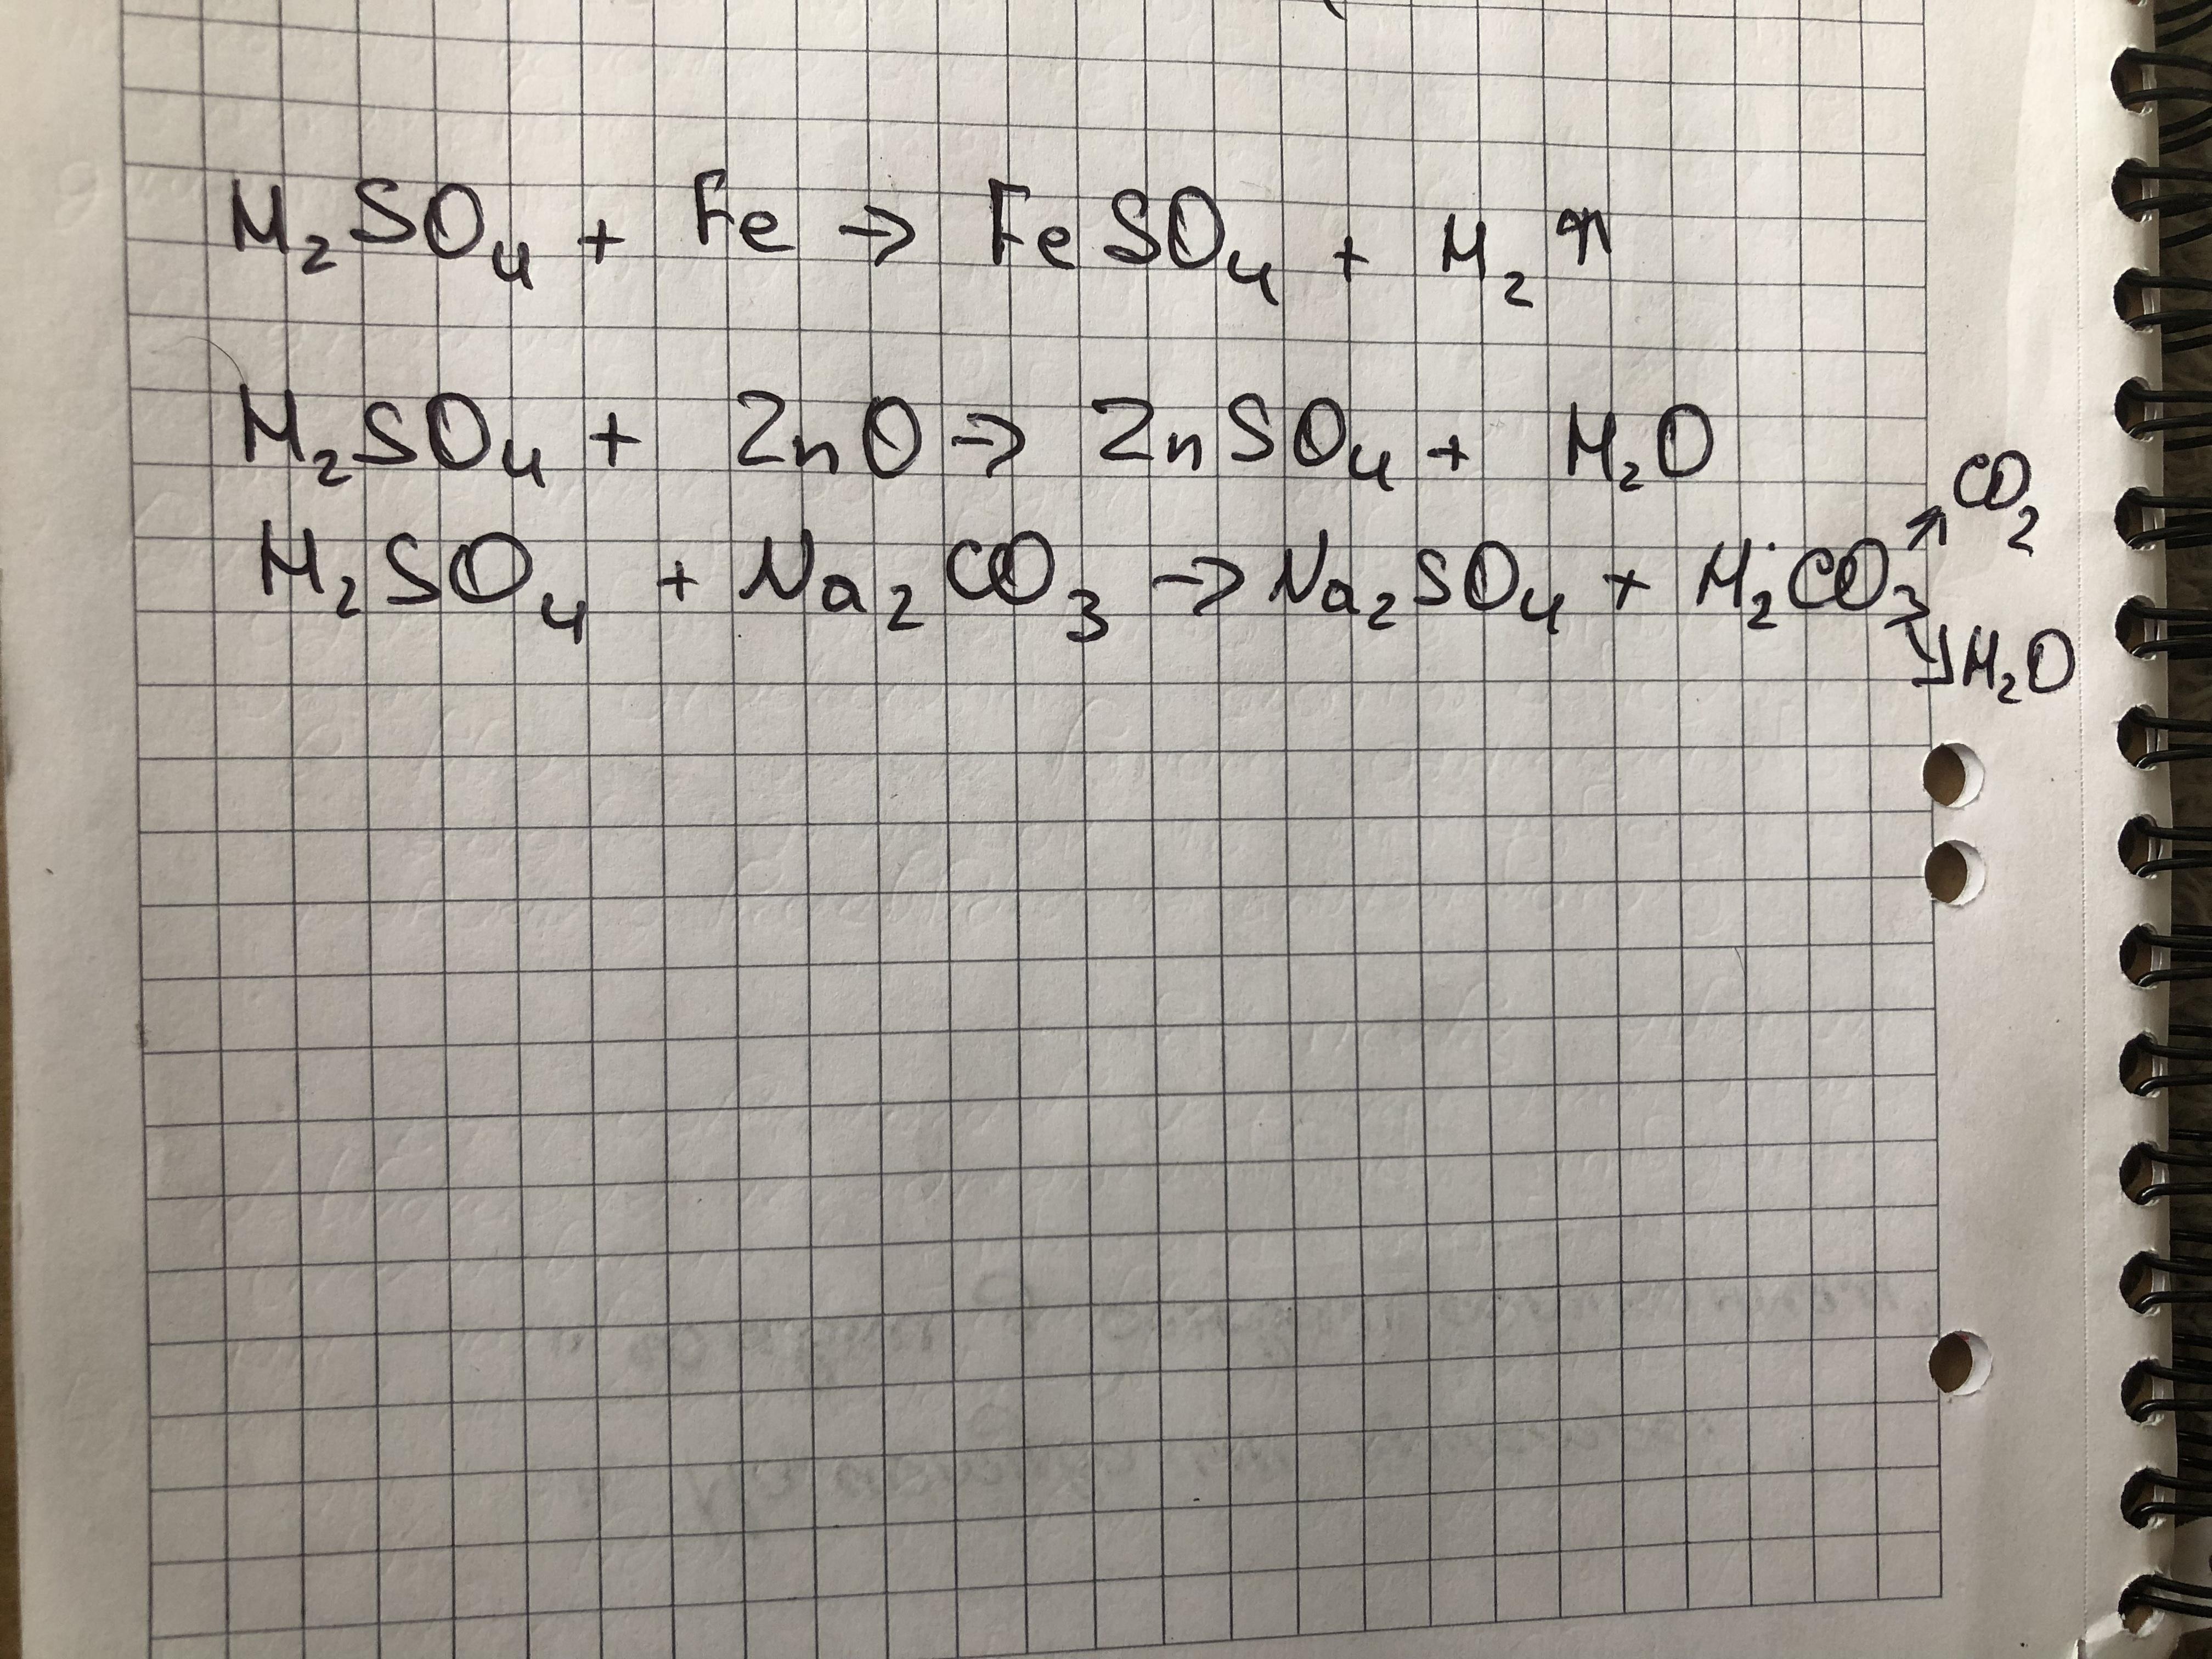 H₂SO₄ + Fe → FeSO₄ + H₂ ↑
H₂SO₄ + ZnO → ZnSO₄ + H₂O
H₂SO₄ + Na₂CO₃ → Na₂SO₄ + H₂CO₃ ↗ CO₂
↘ H₂O